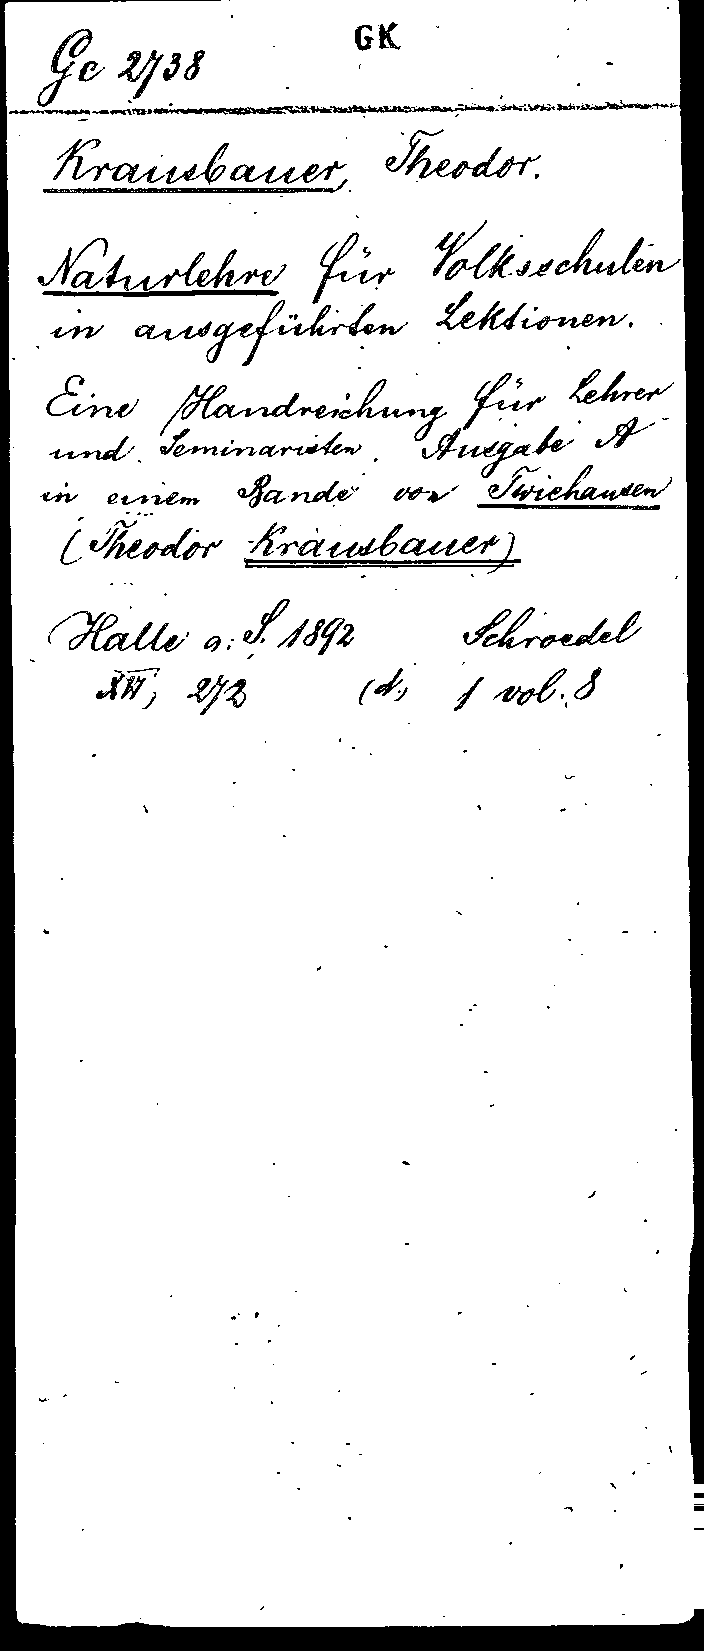 GK
Gc 2738
Krausbauer, Theodor.
Naturlehre für Volksschulen
in ausgeführten Lektionen.
Eine Handreichung für Lehrer
und Seminaristen. Ausgabe A
in einem Bande von Twiehausen
(Theodor Krausbauer)
Halle a. S. 1892 Schroedel
XVI, 272 (d.) 1 vol. 8